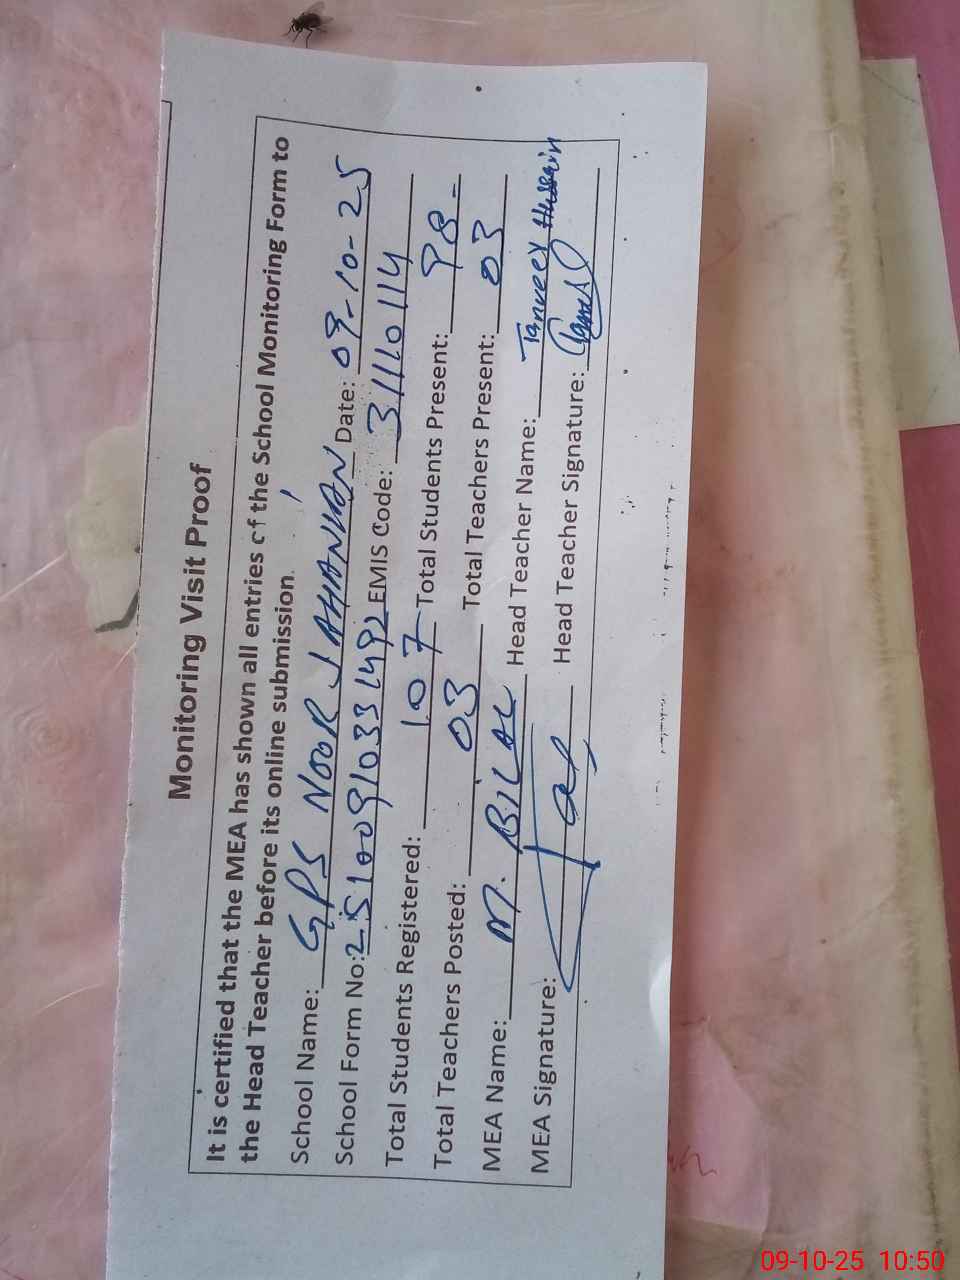 Monitoring Visit Proof
It is certified that the MEA has shown all entries of the School Monitoring Form to
the Head Teacher before its online submission.
School Name: GPS NOOR JAHANIAN Date: 09-10-25
School Form No: 25100910331492 EMIS Code: 31110114
Total Students Registered: 107 Total Students Present: 98-
Total Teachers Posted: 03 Total Teachers Present: 03
MEA Name: M. BILAL Head Teacher Name: Tanveer Hussain
MEA Signature: Head Teacher Signature:
09-10-25 10:50